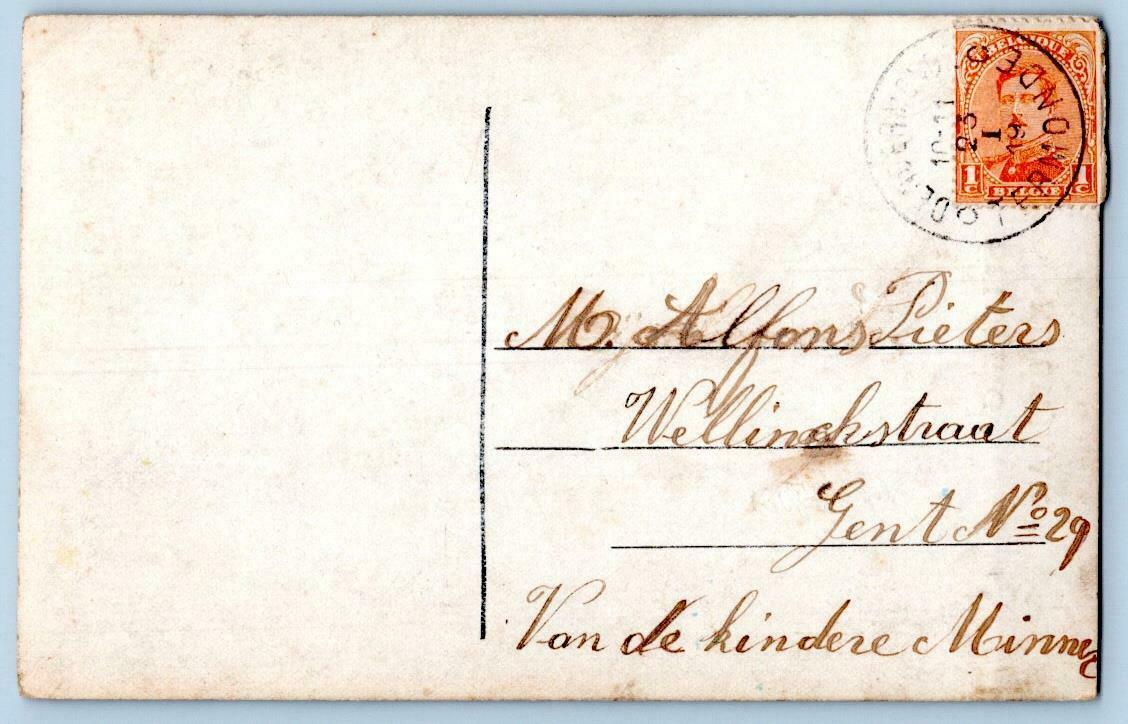 BELGIQUE
1 C
1 C
BELGIE
10-11
23
I
19
M. Alfons Pieters
Wellinckstraat
Gent No 29
Van de kindere Minne